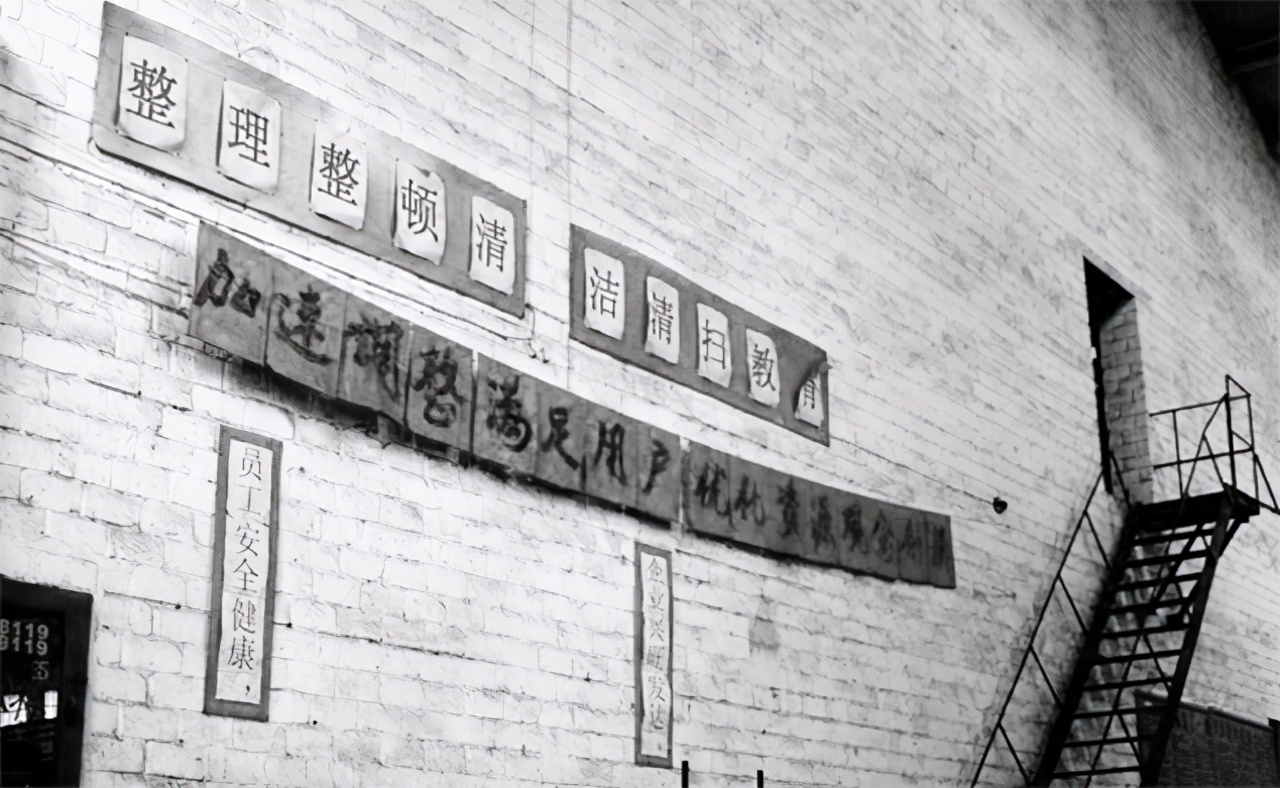 整理整顿清
洁清扫教育
加速调整满足用户优化资源现金
员工安全健康，
企业兴旺发达
B119
B119